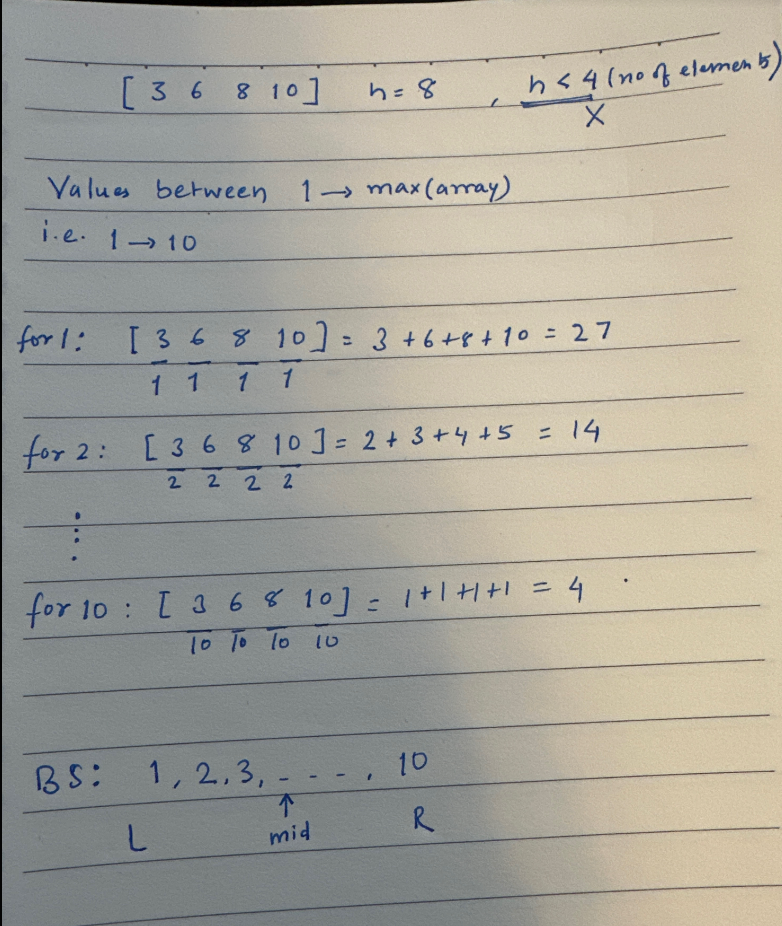 [ 3 6 8 10 ] h = 8 , h < 4 (no of elements)
X
Values between 1 → max(array)
i.e. 1 → 10
for 1: [ 3 6 8 10 ] = 3 + 6 + 8 + 10 = 27
1 1 1 1
for 2: [ 3 6 8 10 ] = 2 + 3 + 4 + 5 = 14
2 2 2 2
⋮
for 10 : [ 3 6 8 10 ] = 1 + 1 + 1 + 1 = 4
10 10 10 10
BS: 1, 2, 3, - - - , 10
↑
L mid R